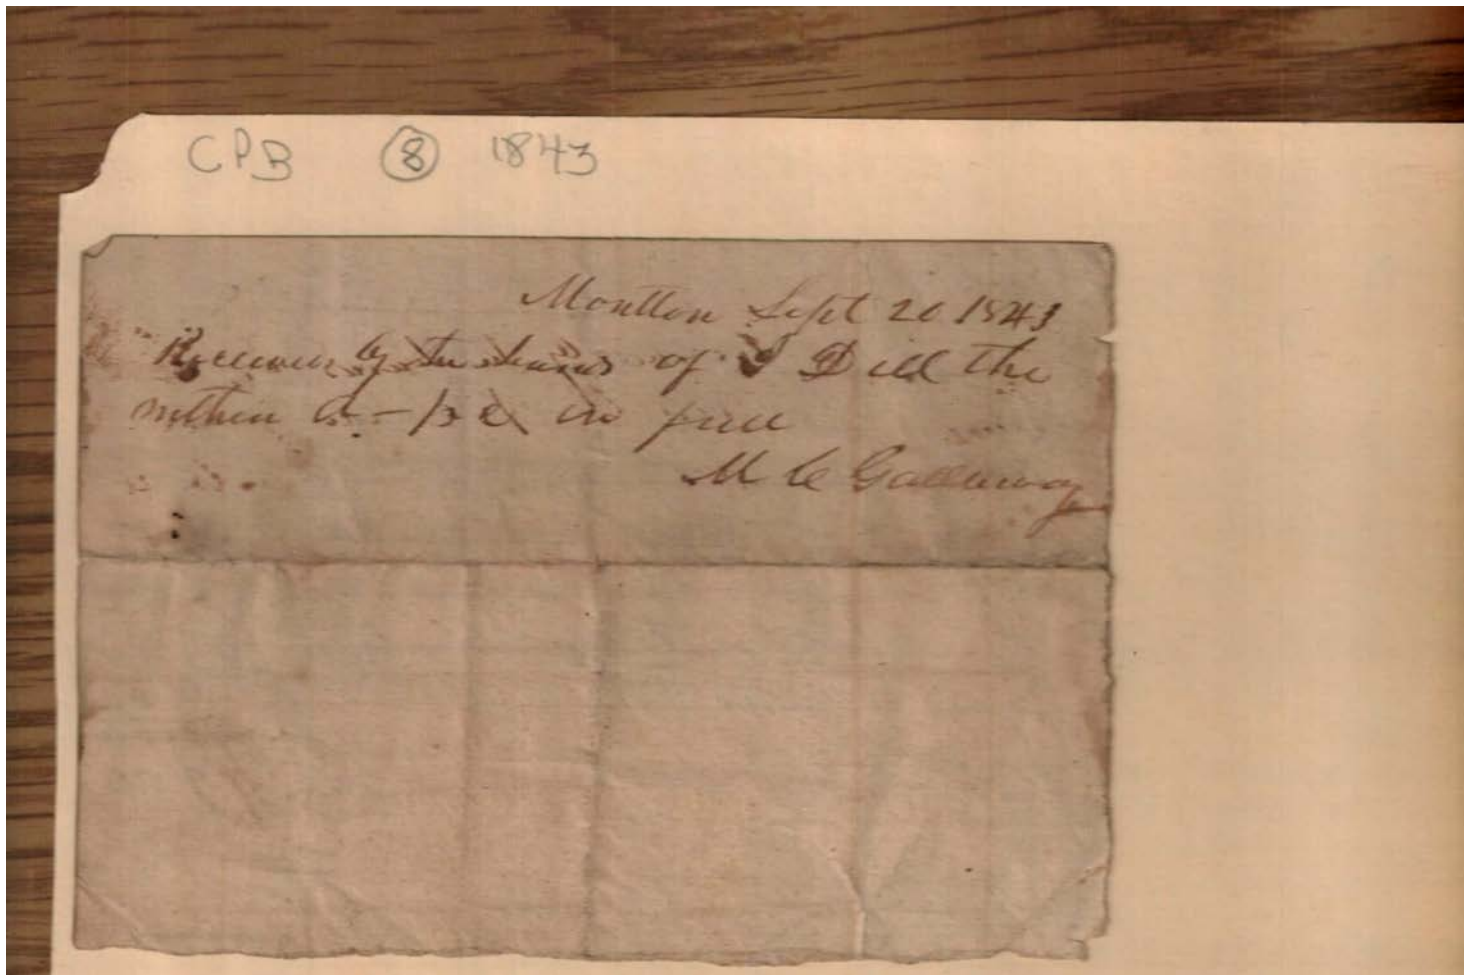 CPB 8 1843
Moulton Sept 20 1843
Received by the hands of Dill the
within in full
M C Gallaway